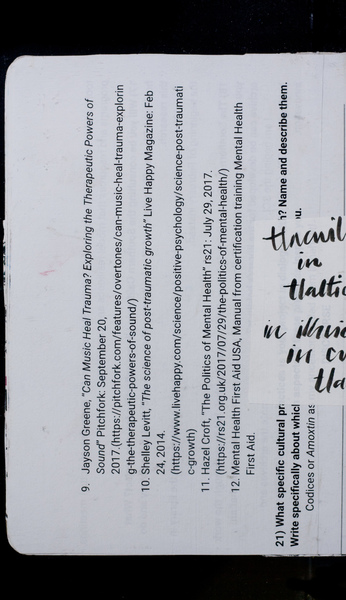 9. Jayson Greene, "Can Music Heal Trauma? Exploring the Therapeutic Powers of
Sound" Pitchfork: September 20,
2017.(https://pitchfork.com/features/overtones/can-music-heal-trauma-explorin
g-the-therapeutic-powers-of-sound/)
10. Shelley Levitt, "The science of post-traumatic growth" Live Happy Magazine: Feb
24, 2014.
(https://www.livehappy.com/science/positive-psychology/science-post-traumati
c-growth)
11. Hazel Croft, "The Politics of Mental Health" rs21: July 29, 2017.
(https://rs21.org.uk/2017/07/29/the-politics-of-mental-health/)
12. Mental Health First Aid USA, Manual from certification training Mental Health
First Aid.
21) What specific cultural pr n? Name and describe them.
Write specifically about which u.
Codices or Amoxtin as
in
in
in cu